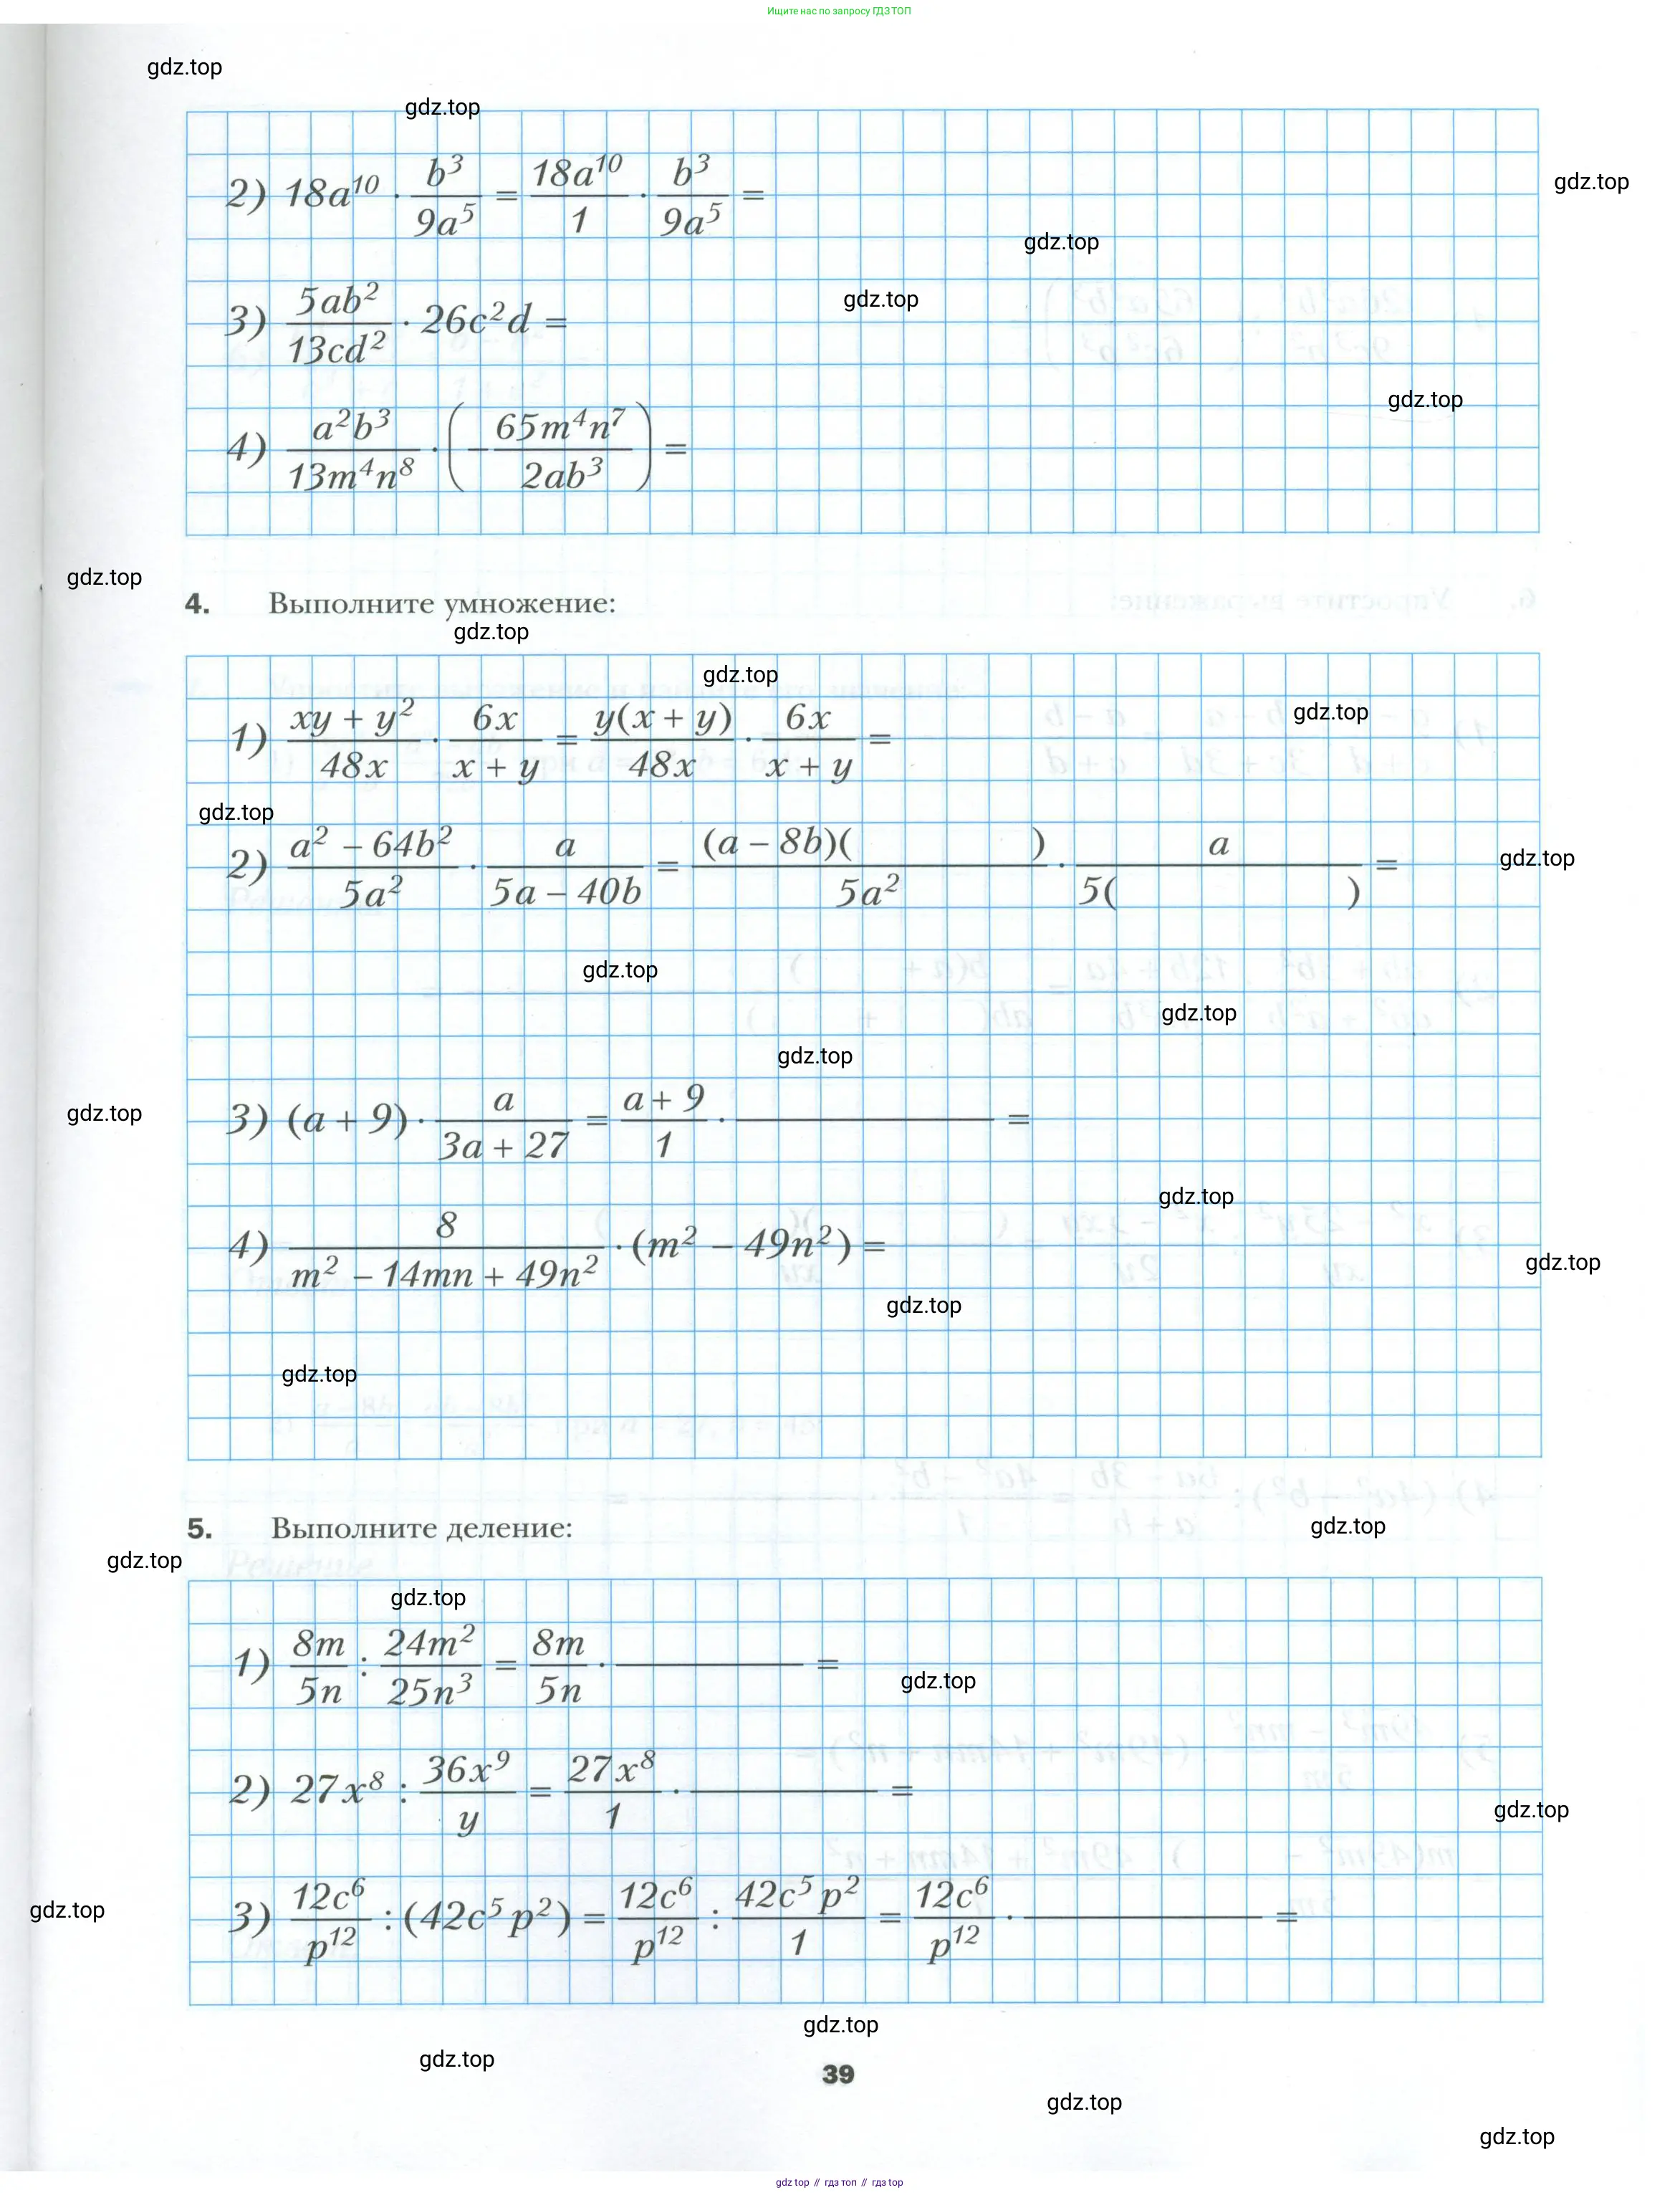 Ищите нас по запросу ГДЗ ТОП
gdz.top
gdz.top
2) 18a¹⁰ · b³/9a⁵ = 18a¹⁰/1 · b³/9a⁵ =
gdz.top
gdz.top
gdz.top
3) 5ab²/13cd² · 26c²d =
gdz.top
4) a²b³/13m⁴n⁸ · (−65m⁴n⁷/2ab³) =
gdz.top
4. Выполните умножение:
gdz.top
gdz.top
gdz.top
1) (xy + y²)/48x · 6x/(x + y) = y(x + y)/48x · 6x/(x + y) =
gdz.top
gdz.top
2) (a² – 64b²)/5a² · a/(5a – 40b) = (a – 8b)( )/5a² · a/5( ) =
gdz.top
gdz.top
gdz.top
gdz.top
3) (a + 9) · a/(3a + 27) = (a + 9)/1 · ——— =
gdz.top
4) 8/(m² – 14mn + 49n²) · (m² – 49n²) =
gdz.top
gdz.top
gdz.top
5. Выполните деление:
gdz.top
gdz.top
gdz.top
1) 8m/5n : 24m²/25n³ = 8m/5n · ——— =
gdz.top
2) 27x⁸ : 36x⁹/y = 27x⁸/1 · ——— =
gdz.top
3) 12c⁶/p¹² : (42c⁵p²) = 12c⁶/p¹² : 42c⁵p²/1 = 12c⁶/p¹² · ——— =
gdz.top
gdz.top
gdz.top
39
gdz.top
gdz.top
gdz top // гдз топ // гдз top